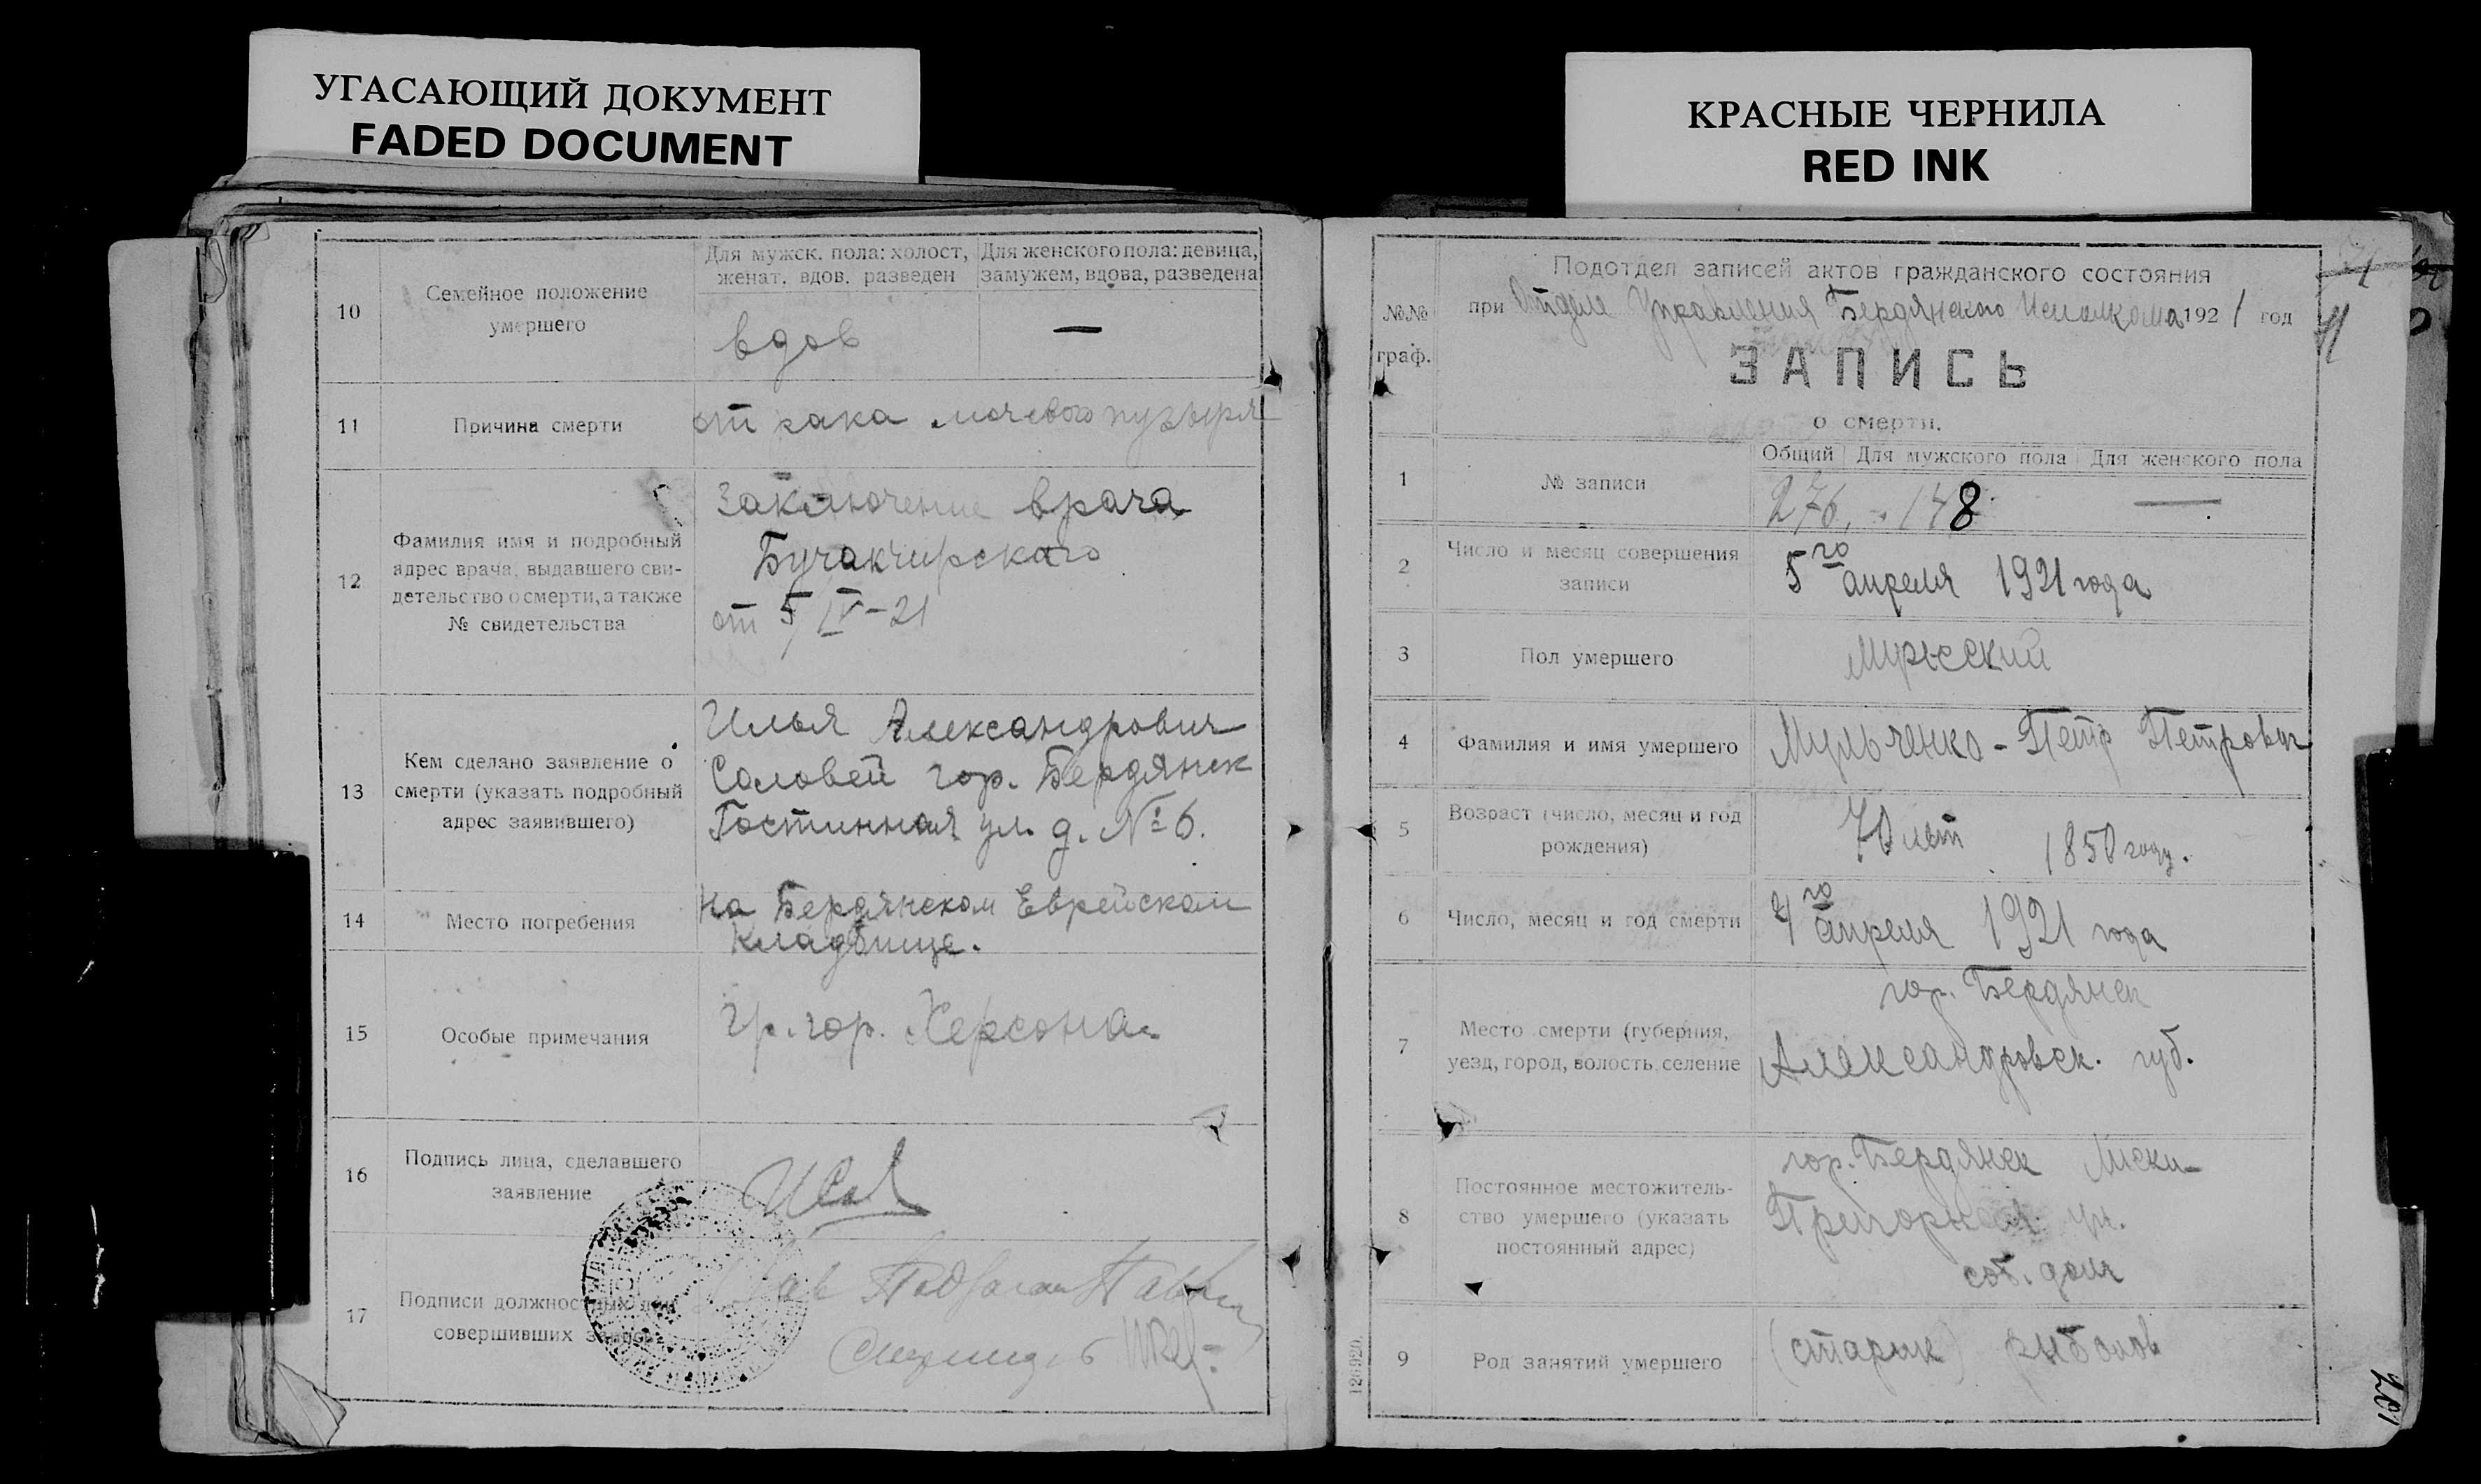 УГАСАЮЩИЙ ДОКУМЕНТ
FADED DOCUMENT
КРАСНЫЕ ЧЕРНИЛА
RED INK
10
Семейное положение
умершего
Для мужск. пола: холост,
женат, вдов, разведен
Для женского пола: девица,
замужем, вдова, разведена
вдов
—
11
Причина смерти
от рака мочевого пузыря
12
Фамилия имя и подробный
адрес врача, выдавшего сви-
детельство о смерти, а также
№ свидетельства
Заключение врача
от 5/IV-21
13
Кем сделано заявление о
смерти (указать подробный
адрес заявившего)
Илья Александрович
Соловей гор. Бердянск
Гостинная ул. д. № 6.
14
Место погребения
на Бердянском Еврейском
кладбище.
15
Особые примечания
Гр. гор. Херсона
16
Подпись лица, сделавшего
заявление
17
Подписи должностных лиц
совершивших запись
№№
граф.
Подотдел записей актов гражданского состояния
при Отделе Управления Бердянского Исполкома 1921 год
ЗАПИСЬ
о смерти.
1
№ записи
Общий
Для мужского пола
Для женского пола
276. 148 —
2
Число и месяц совершения
записи
5го апреля 1921 года
3
Пол умершего
Мужский
4
Фамилия и имя умершего
Мульченко - Петр Петрович
5
Возраст (число, месяц и год
рождения)
70 лет 1850 году.
6
Число, месяц и год смерти
4го апреля 1921 года
7
Место смерти (губерния,
уезд, город, волость, селение
гор. Бердянск
Александровск. губ.
8
Постоянное местожитель-
ство умершего (указать
постоянный адрес)
гор. Бердянск Лиски
ул.
соб. дом
9
Род занятий умершего
(старик) рыболов
126920